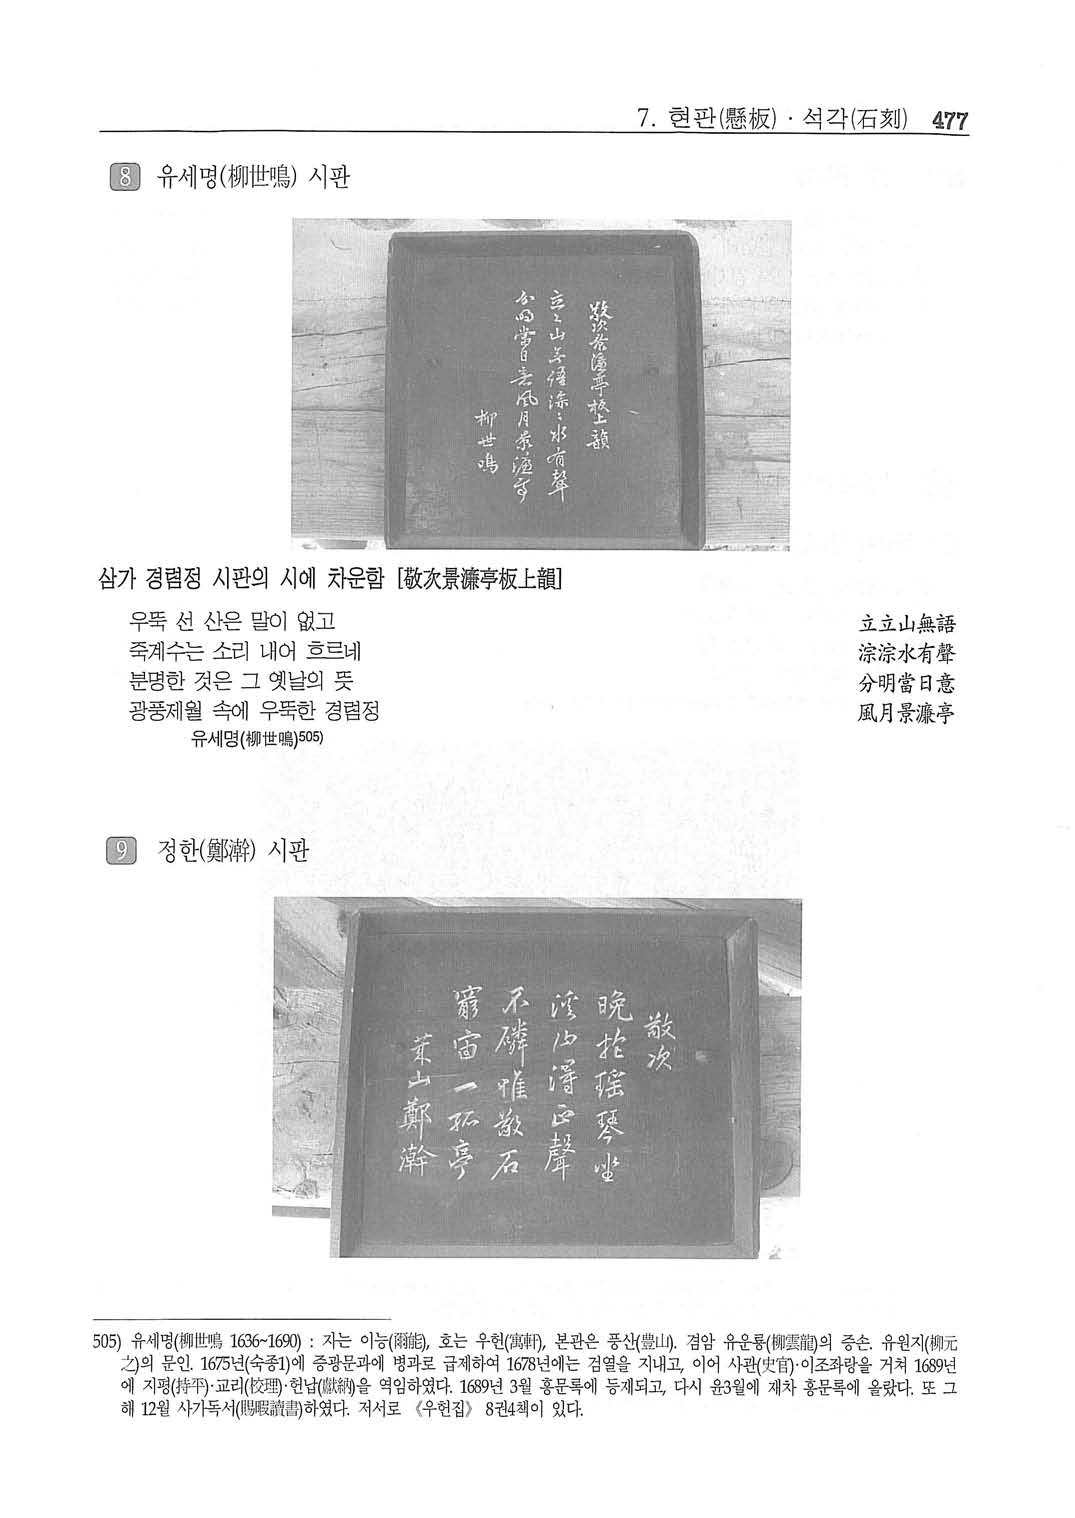 7. 현판(懸板)·석각(石刻) 477
8 유세명(柳世鳴) 시판
敬次景濂亭板上韻
立〻山無語淙〻水有聲
分明當日意風月景濂亭
柳世鳴
삼가 경렴정 시판의 시에 차운함 [敬次景濂亭板上韻]
우뚝 선 산은 말이 없고 立立山無語
죽계수는 소리 내어 흐르네 淙淙水有聲
분명한 것은 그 옛날의 뜻 分明當日意
광풍제월 속에 우뚝한 경렴정 風月景濂亭
유세명(柳世鳴)505)
9 정한(鄭瀚) 시판
敬次
晩抱瑶琴坐
溪山得正聲
不磷惟敬石
窮宙一孤亭
萊山鄭瀚
505) 유세명(柳世鳴 1636~1690) : 자는 이능(爾能), 호는 우헌(寓軒), 본관은 풍산(豊山). 겸암 유운룡(柳雲龍)의 증손. 유원지(柳元
之)의 문인. 1675년(숙종1)에 증광문과에 병과로 급제하여 1678년에는 검열을 지내고, 이어 사관(史官)·이조좌랑을 거쳐 1689년
에 지평(持平)·교리(校理)·헌납(獻納)을 역임하였다. 1689년 3월 홍문록에 등재되고, 다시 윤3월에 재차 홍문록에 올랐다. 또 그
해 12월 사가독서(賜暇讀書)하였다. 저서로 《우헌집》 8권4책이 있다.